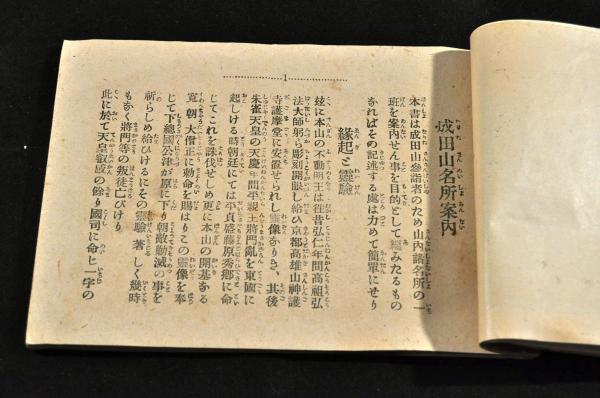 1
成田山名所案内
本書は成田山參詣者のため山内諸名所の一
班を案内せん事を目的として編みたるもの
なればその記述する處は力めて簡單にせり
縁起と靈驗
玆に本山の不動明王は往昔弘仁年間高祖弘
法大師躬ら彫刻開眼し給ひ京都高雄山神護
寺護摩堂に安置せられし靈像なりき、其後
朱雀天皇の天慶年間平親王將門亂を東國に
起しける時朝廷にては平貞盛藤原秀郷に命
じてこれを誅伐せしめ更に本山の開基なる
寛朝大僧正に勅命を賜はりこの靈像を奉
じて下總國公津が原に下り朝敵勦滅の事を
祈らしめ給ひけるにその靈驗著しく幾時
もなく將門等の叛徒亡びけり
此に於て天皇叡感の餘り國司に命じ一宇の